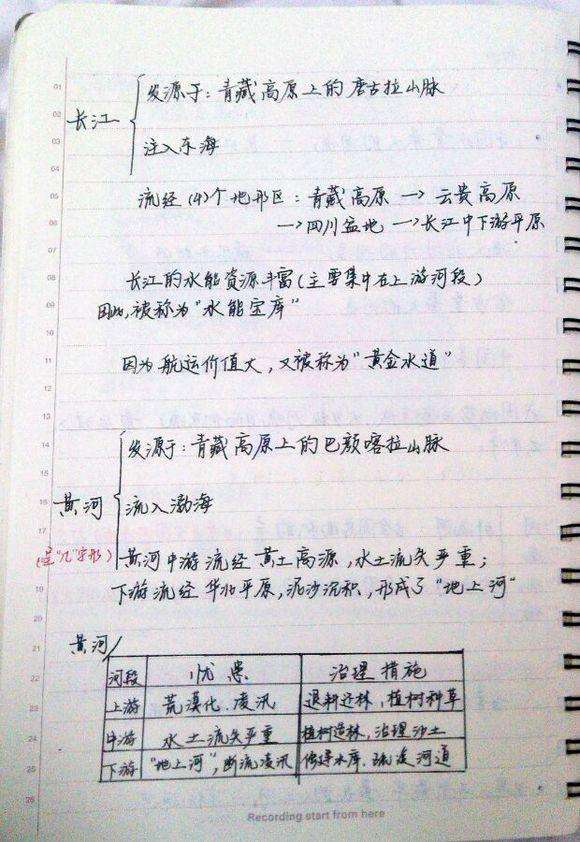 发源于：青藏高原上的唐古拉山脉
长江
注入东海
流经(4)个地形区：青藏高原 → 云贵高原
→四川盆地 →长江中下游平原
长江的水能资源丰富(主要集中在上游河段)
因此,被称为"水能宝库"
因为航运价值大，又被称为"黄金水道"
发源于：青藏高原上的巴颜喀拉山脉
黄河
流入渤海
(呈"几"字形)
黄河中游流经黄土高源,水土流失严重；
下游流经华北平原,泥沙沉积,形成了"地上河"
黄河
河段 忧患 治理措施
上游 荒漠化.凌汛 退耕还林,植树种草
中游 水土流失严重 植树造林,治理沙土
下游 "地上河",断流凌汛 修建水库.疏浚河道
Recording start from here
01
02
03
04
05
06
07
08
09
10
11
12
13
14
15
16
17
18
19
20
21
22
23
24
25
26